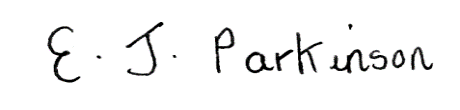 E. J. Parkinson